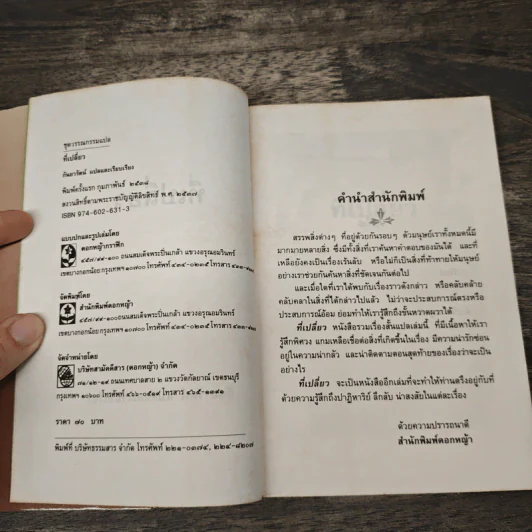 ชุดวรรณกรรมแปล
ที่เปลี่ยว
กันยารัตน์ แปลและเรียบเรียง
พิมพ์ครั้งแรก กุมภาพันธ์ ๒๕๓๘
สงวนลิขสิทธิ์ตามพระราชบัญญัติลิขสิทธิ์ พ.ศ. ๒๕๓๗
ISBN 974-602-631-3
แบบปกและรูปเล่มโดย
ดอกหญ้ากราฟิค
ถนนสมเด็จพระปิ่นเกล้า แขวงอรุณอมรินทร์
เขตบางกอกน้อย กรุงเทพฯ ๑๐๗๐๐ โทรศัพท์
จัดพิมพ์โดย
สำนักพิมพ์ดอกหญ้า
ถนนสมเด็จพระปิ่นเกล้า แขวงอรุณอมรินทร์
เขตบางกอกน้อย กรุงเทพฯ ๑๐๗๐๐ โทรศัพท์
จัดจำหน่ายโดย
บริษัทสามัคคีสาร (ดอกหญ้า) จำกัด
๗๑/๑๒-๑๔ ถนนเทศบาลสาย ๒ แขวงวัดกัลยาณ์ เขตธนบุรี
กรุงเทพฯ ๑๐๖๐๐ โทรศัพท์ ๔๖๖-๐๕๑๙ โทรสาร ๔๖๕-๑๓๙๑
ราคา ๗๐ บาท
พิมพ์ที่ บริษัทธรรมสาร จำกัด โทรศัพท์ ๒๒๑-๐๓๗๔, ๒๒๔-๘๒๐๗
คำนำสำนักพิมพ์
สรรพสิ่งต่างๆ ที่อยู่ด้วยกันรอบๆ ตัวมนุษย์เราทั้งหมดนี้มี
มากมายหลายสิ่ง ซึ่งมีทั้งสิ่งที่เราค้นหาคำตอบของมันได้ และที่
เหลือยังคงเป็นเรื่องเร้นลับ หรือไม่ก็เป็นสิ่งที่ท้าทายให้มนุษย์
อย่างเราช่วยกันค้นหาสิ่งที่ชัดเจนกันต่อไป
และเมื่อใดที่เราได้พบกับเรื่องราวดังกล่าว หรือคลับคล้าย
คลับคลาในสิ่งที่ได้กล่าวไปแล้ว ไม่ว่าจะประสบการณ์ตรงหรือ
ประสบการณ์อ้อม ย่อมทำให้เรารู้สึกถึงขั้นหวาดผวาได้
ที่เปลี่ยว หนังสือรวมเรื่องสั้นแปลเล่มนี้ ที่มีเนื้อหาให้เรา
รู้สึกพิศวง แกมเหลือเชื่อต่อสิ่งที่เกิดขึ้นในเรื่อง มีความน่ารักซ่อน
อยู่ในความน่ากลัว และน่าติดตามตอนสุดท้ายของเรื่องว่าจะเป็น
อย่างไร
ที่เปลี่ยว จะเป็นหนังสืออีกเล่มที่จะทำให้ท่านตรึงอยู่กับที่
ด้วยความรู้สึกถึงปาฏิหาริย์ ลึกลับ น่าสงสัยในแต่ละเรื่อง
ด้วยความปรารถนาดี
สำนักพิมพ์ดอกหญ้า